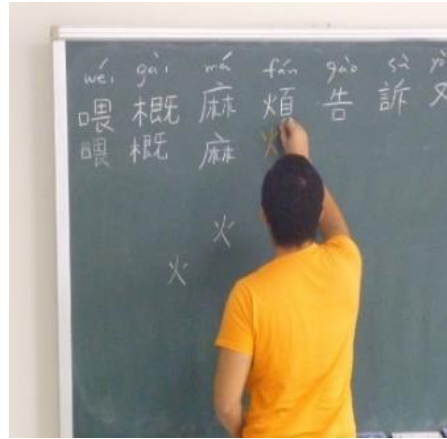 wéi gài má fán gào sù
喂 概 麻 煩 告 訴
喂 概 麻 火
火
火